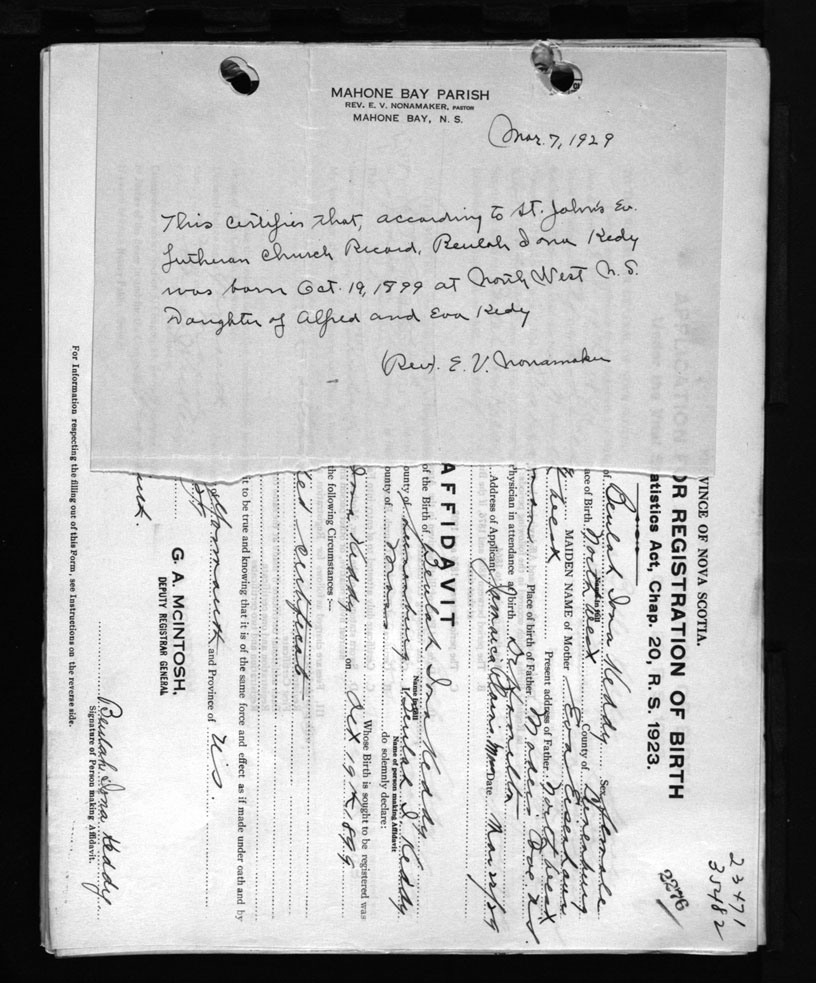 MAHONE BAY PARISH
REV. E. V. NONAMAKER, PASTOR
MAHONE BAY, N. S.
Mar. 7, 1929
This certifies that, according to St. John's Ev.
Lutheran Church Record, Beulah Iona Kedy
was born Oct. 19, 1899 at North West N. S.
Daughter of Alfred and Eva Kedy
(Rev). E. V. Nonamaker
23471
35482
2276
VINCE OF NOVA SCOTIA.
OR REGISTRATION OF BIRTH
atistics Act, Chap. 20, R. S. 1923.
of Beulah Iona Keddy Sex female
ace of Birth North West County of Lunenburg
MAIDEN NAME of Mother Eva Eisenhauer
Present address of Father North West
Place of birth of Father Maders Cove N.S.
Physician in attendance at birth Dr Hamilton
Address of Applicant Jamaica Plain Date
AFFIDAVIT
Name in full
of the Birth of Beulah Iona Keddy
ounty of Lunenburg I, Beulah I. Keddy
Name of person making Affidavit
ounty of do solemnly declare:
Whose Birth is sought to be registered was
Iona Keddy on Oct 19th 1899
the following Circumstances:—
certificate
t to be true and knowing that it is of the same force and effect as if made under oath and by
of Yarmouth and Province of N.S.
G. A. McINTOSH,
DEPUTY REGISTRAR GENERAL
Beulah Iona Keddy
Signature of Person making Affidavit.
For Information respecting the filling out of this Form, see Instructions on the reverse side.